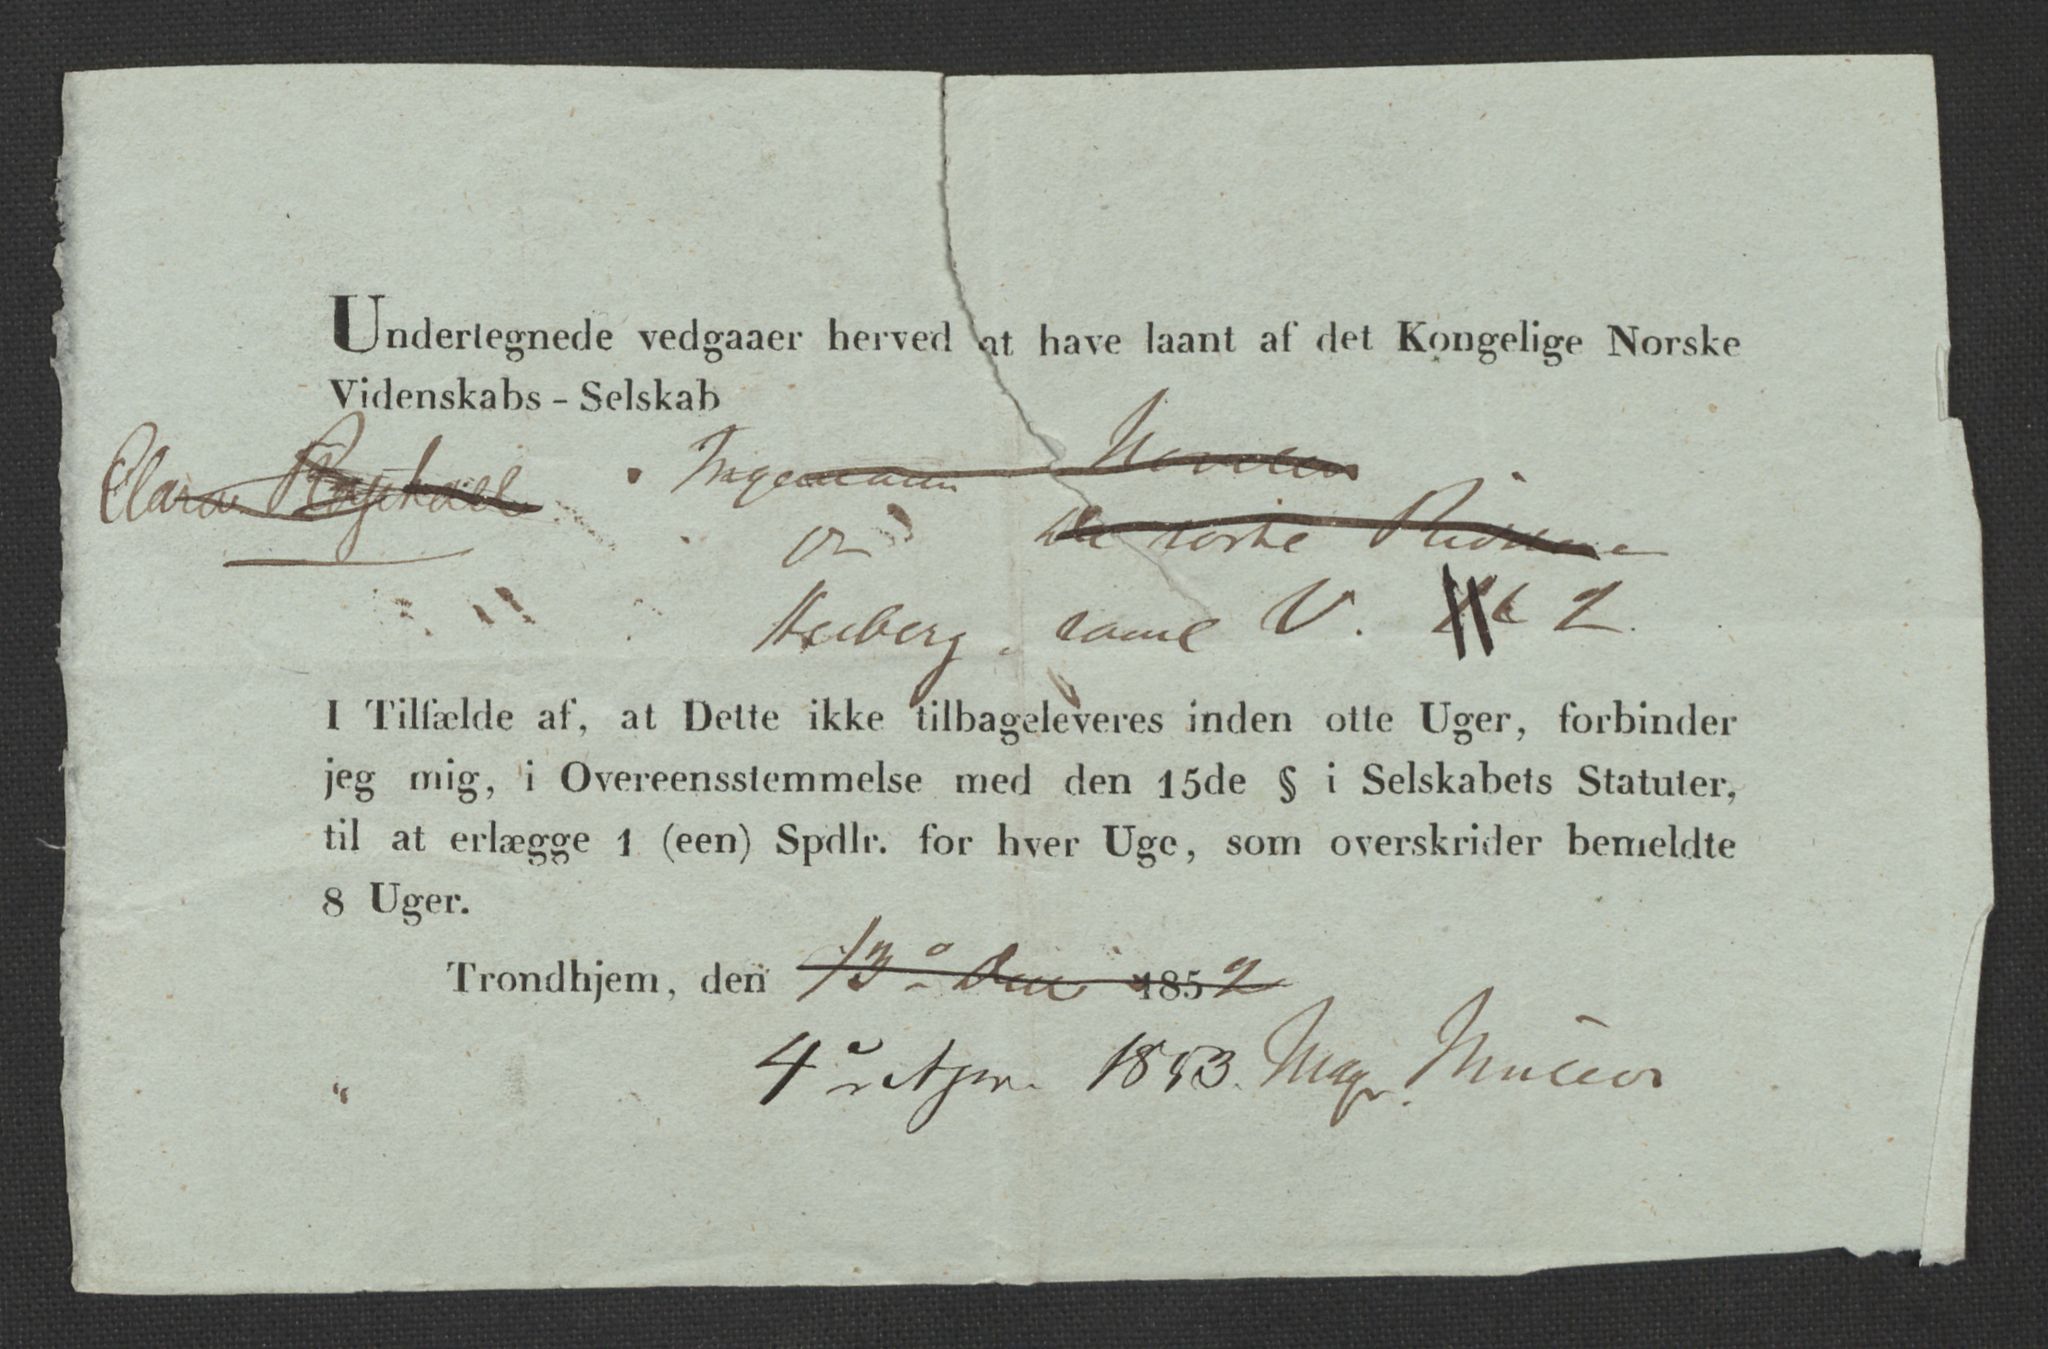 Undertegnede vedgaaer herved at have laant af det Kongelige Norske
Videnskabs - Selskab
Clara Raphael Ingemann
Heiberg. saml V. 2.
I Tilfælde af, at Dette ikke tilbageleveres inden otte Uger, forbinder
jeg mig, i Overeensstemmelse med den 15de § i Selskabets Statuter,
til at erlægge 1 (een) Spdlr. for hver Uge, som overskrider bemeldte
8 Uger.
Trondhjem, den 13 1852
4 1853.